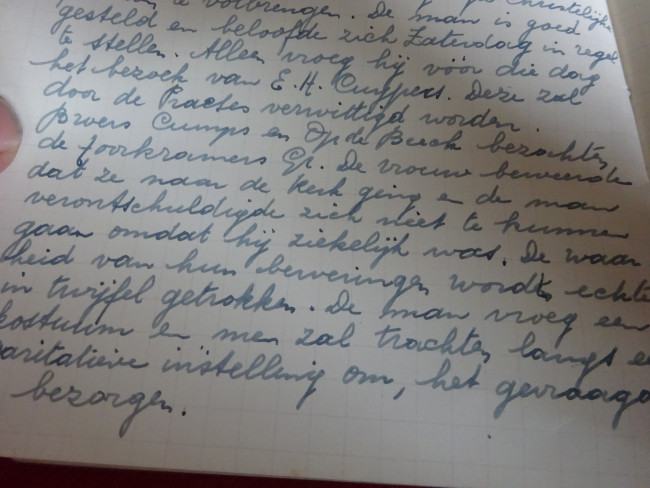 te volbrengen. De man is goed
gesteld en beloofde zich Zaterdag in regel
te stellen. Alleen vroeg hij vóór die dag
het bezoek van E. H. Cuypers. Deze zal
door de Practes verwittigd worden.
Broers Cumps en Op de Beeck bezochten
de foorkramers Gr. De vrouw beweerde
dat ze naar de kerk ging en de man
verontschuldigde zich niet te kunnen
gaan omdat hij ziekelijk was. De waar
heid van hun beweringen wordt echte
in twijfel getrokken. De man vroeg een
kostuum en men zal trachten langs e
aritatieve instelling om, het gevraag
bezorgen.